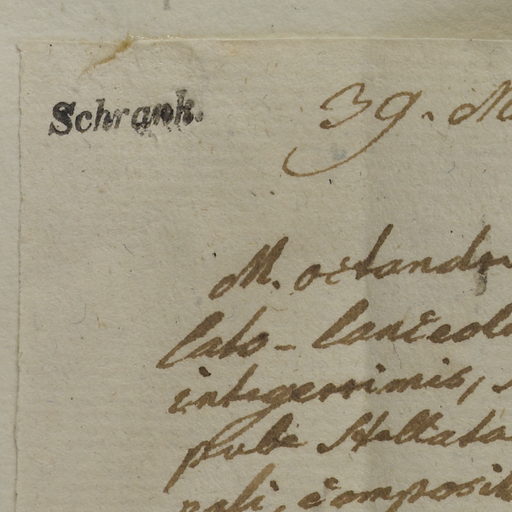 Schrank.
39. M
M. octandr
lato-lanceol
integerrimis,
pube stellata
pali, composit